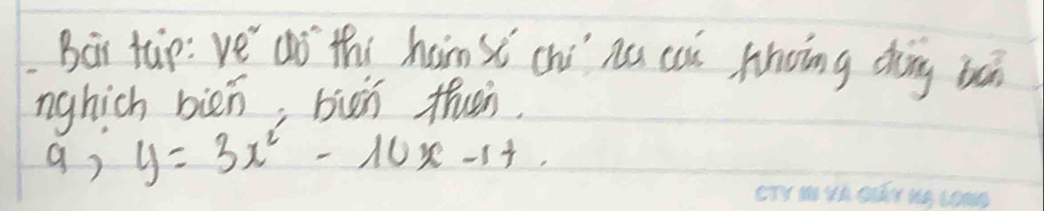 - Bài tập: vẽ đồ thị hàm số chỉ ra các khoảng đồng biến
nghịch biến, biến thiên.
a, y = 3x² - 10x - 17.
CTY IN VÀ GIẤY HẠ LONG